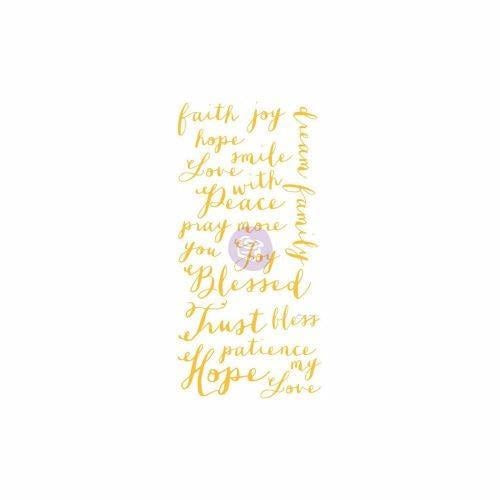 faith joy
hope
smile
Love
with
Peace
dream family
pray more
you Joy
Blessed
Trust bless
patience
Hope my
Love